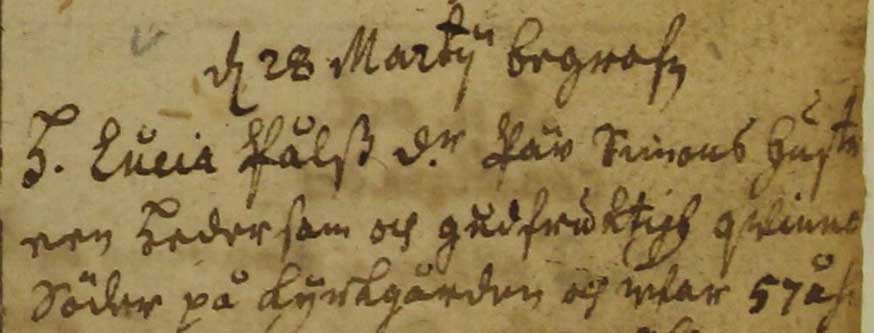 d 28 Martij begrafn
H. Lucia Pålß dr. Pär Simons hust
een hedersam och gudfruktigh qwinna
Söder på kyrkgården och war 57 åhr